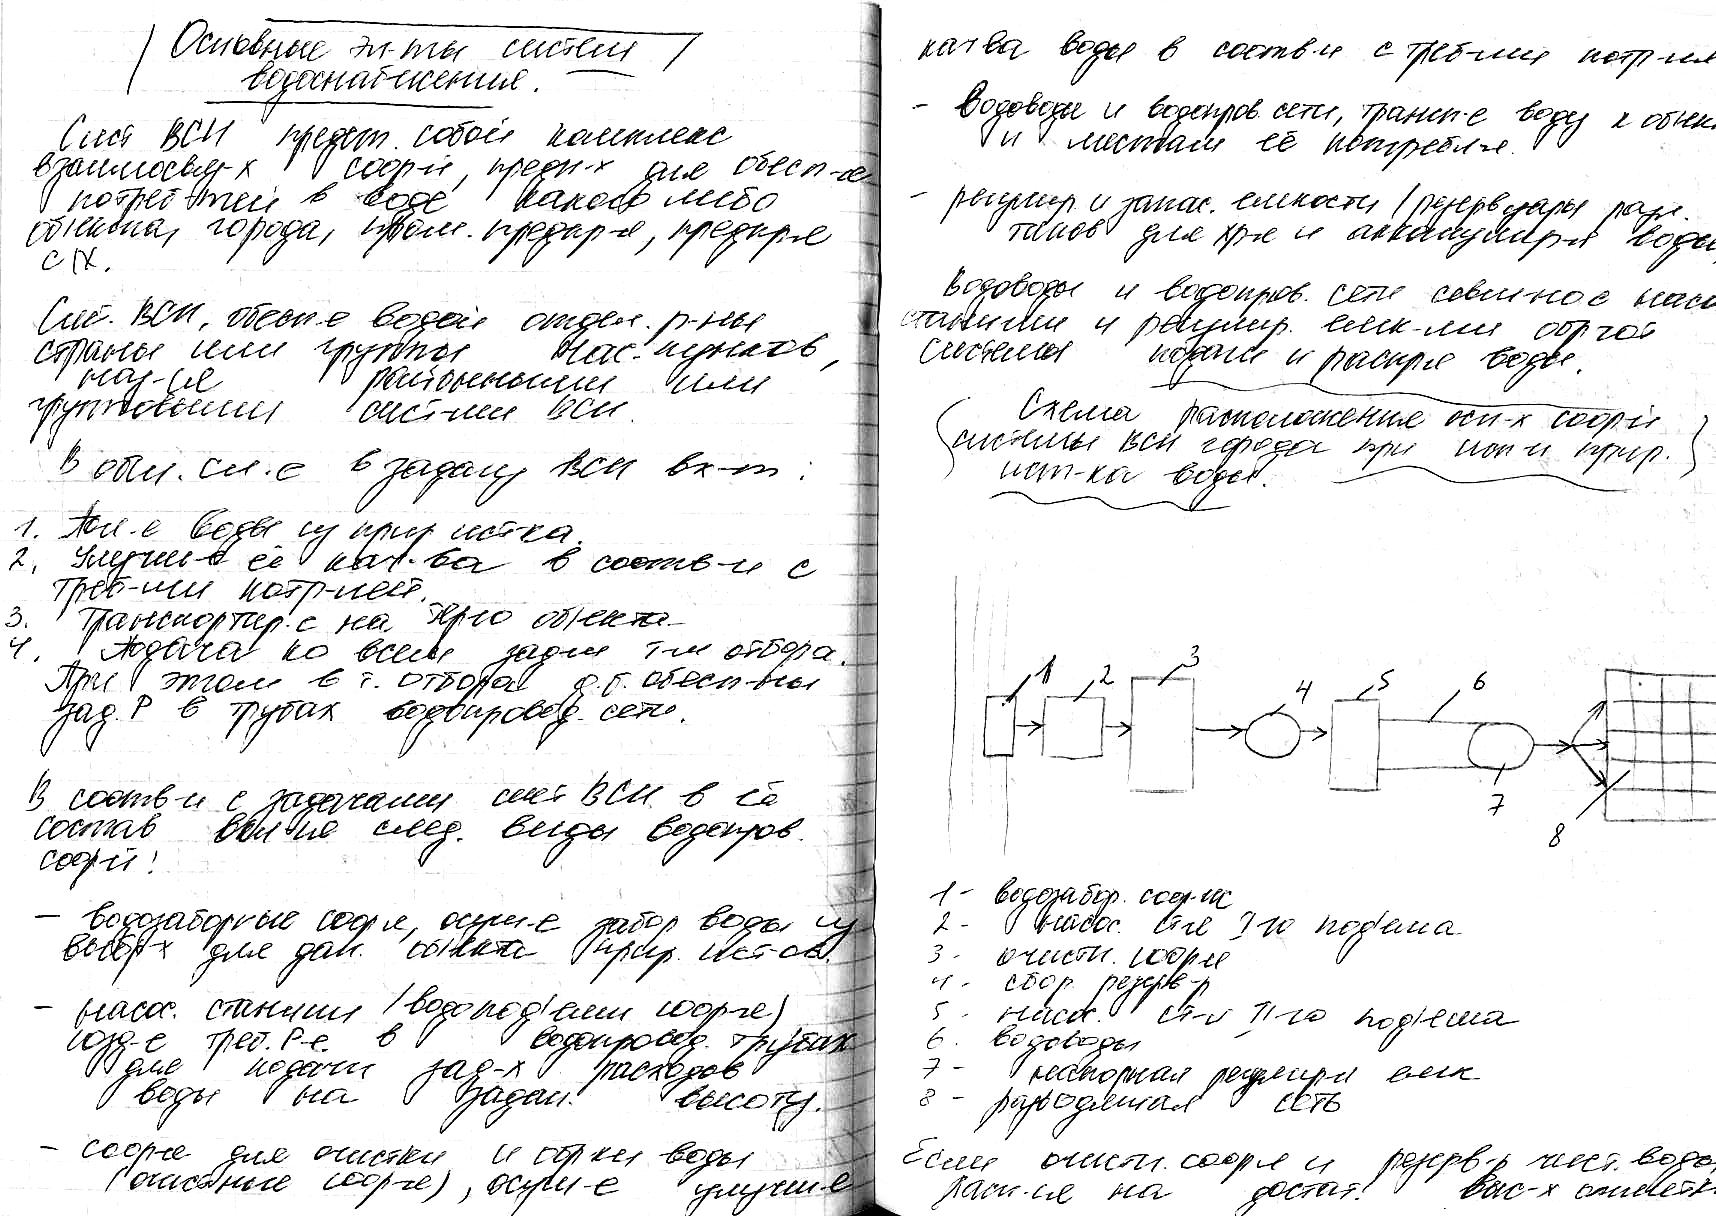 Основные эл-ты систем
водоснабжения.
Сист ВСН предст. собой комплекс
взаимосвяз-х соор-й, предн-х для обесп-я
потреб-тей в воде какого либо
объекта, города, пром. предпр-я, предпр-я
с/х.
Сист. ВСН, обесп-е водой отдел. р-ны
страны или группы нас. пунктов,
наз-ся районными или
групповыми сист-ми ВСН.
В общ. сл-е в задачу ВСН вх-т:
1. Пол-е воды из прир ист-ка.
2. Улучш-е её кач-ва в соотв-и с
треб-ми потр-лей.
3. Транспортир-е на тер-ю объекта
4. Подача ко всем задан т-м отбора.
При этом в т. отбора д.б. обесп-ны
зад. Р в трубах водопровод. сети.
В соотв-и с задачами сист ВСН в её
состав вкл-ся след. виды водопров.
соор-й:
- водозаборные соор-я, осущ-е забор воды из
выбр-х для дан. объекта прир. ист-ов.
- насос. станции (водоподъемн соор-я)
созд-е треб. Р-е в водопровод. трубах
для подачи зад-х расходов
воды на задан. высоту.
- соор-я для очистки и обр-ки воды
(очистные соор-я), осущ-е улучш-е
кач-ва воды в соотв-и с треб-ми потр-лей
- Водоводы и водопров. сети, трансп-е воду к объек
и местам её потребл-я.
- регулир. и запас. емкости (резервуары разл.
типов для хр-я и аккумулир-я воды
Водоводы и водопров. сети совместно с насос
станциями и регулир. емк-ми образ
системы подачи и распр-я воды.
Схема расположения осн-х соор-й
системы ВСН города при исп-и прир.
ист-ка воды.
1 2 3 4 5 6
7
8
1 - водозабор. соор-ие
2 - насос. ст-я I-го подъема
3 - очистн. соор-я
4 - сбор. резерв-р
5 - насос. ст-я II-го подъема
6 - водоводы
7 - напорная регулир-я емк
8 - разводящая сеть
Если очистн. соор-я и резерв-р чист. воды
расп-ся на достат. выс-х отметк